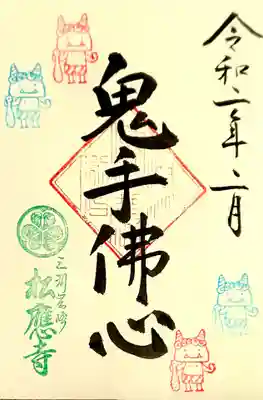 令和二年二月
鬼手佛心
三州岡崎
松應寺